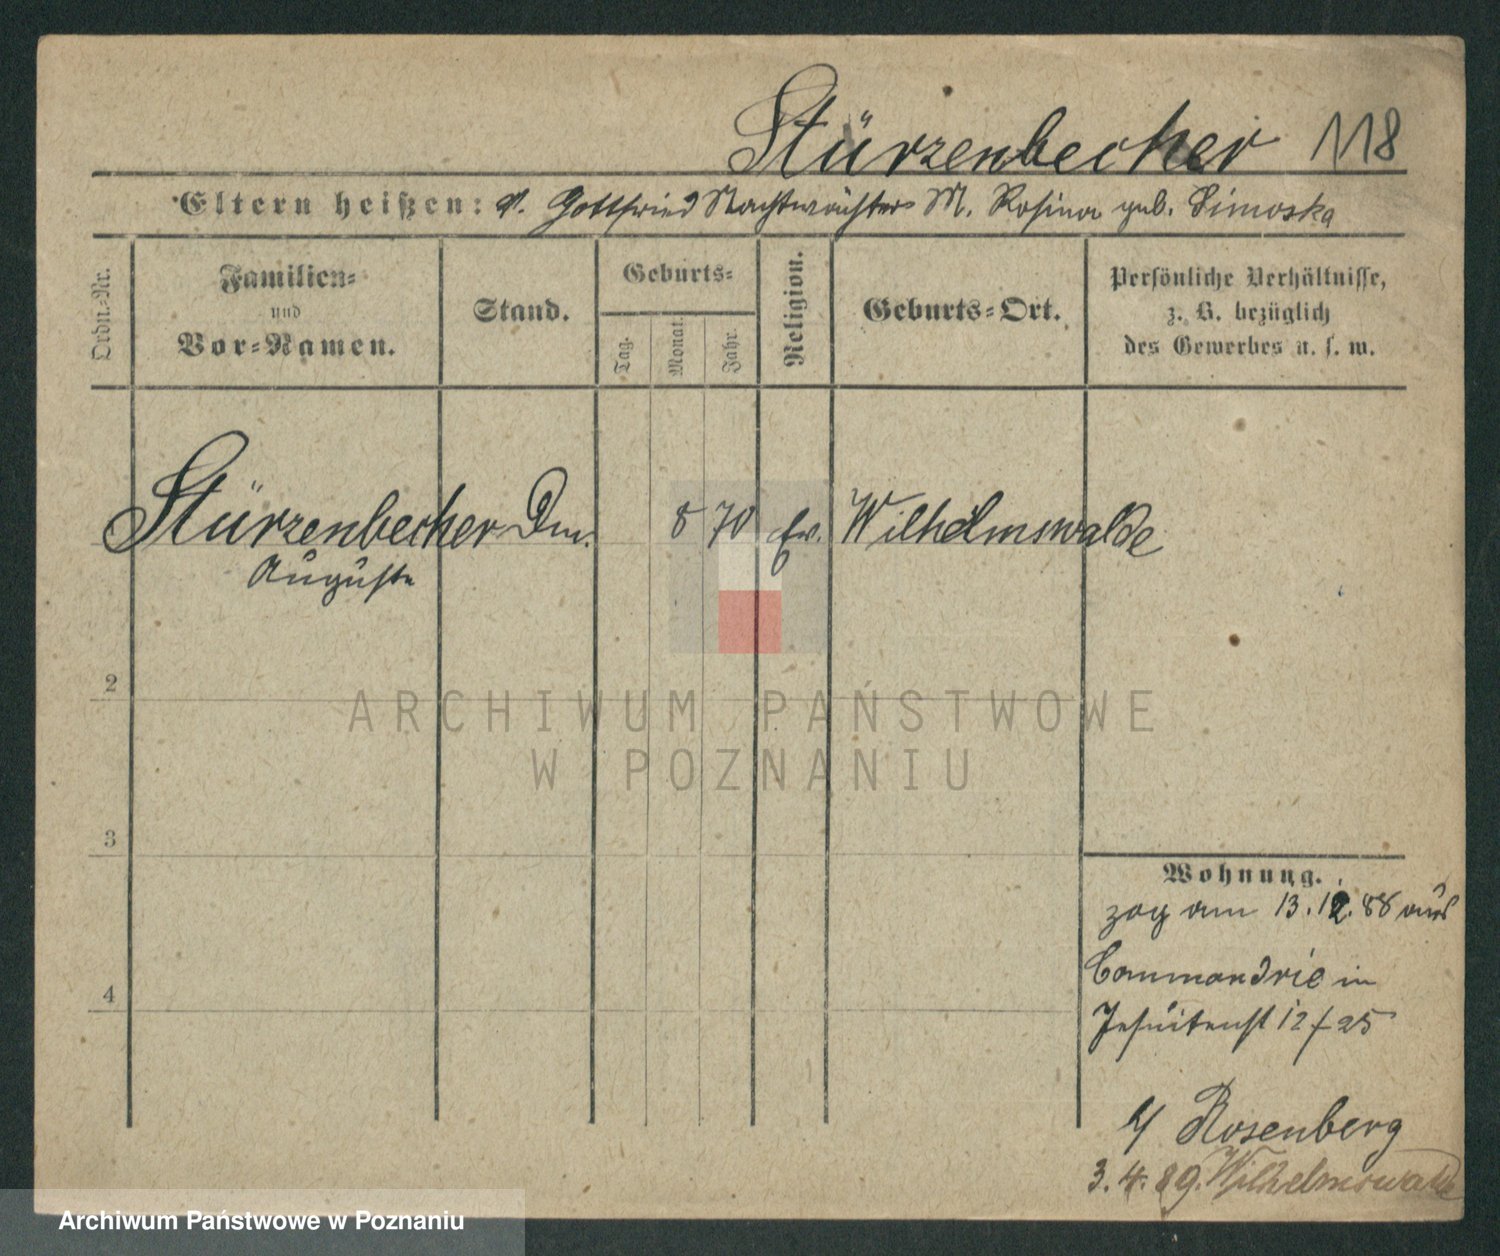 Stürzenbecher 118
Eltern heißen: V. Gottfried Nachtwächter M. Rosina geb. Simoska
Ordn.-Nr.
Familien-
und
Vor-Namen.
Stand.
Geburts-
Tag.
Monat.
Jahr.
Religion.
Geburts-Ort.
Persönliche Verhältnisse,
z. B. bezüglich
des Gewerbes u. s. w.
Stürzenbecher Dm. 8 70 Ev. Wilhelmswalde
Auguste
2
3
4
ARCHIWUM PAŃSTWOWE
W POZNANIU
Wohnung.
zog am 13.12.88 aus
Commandrie in
Jesuitenst 12 f 25
Rosenberg
3.4.89. Wilhelmswalde
Archiwum Państwowe w Poznaniu